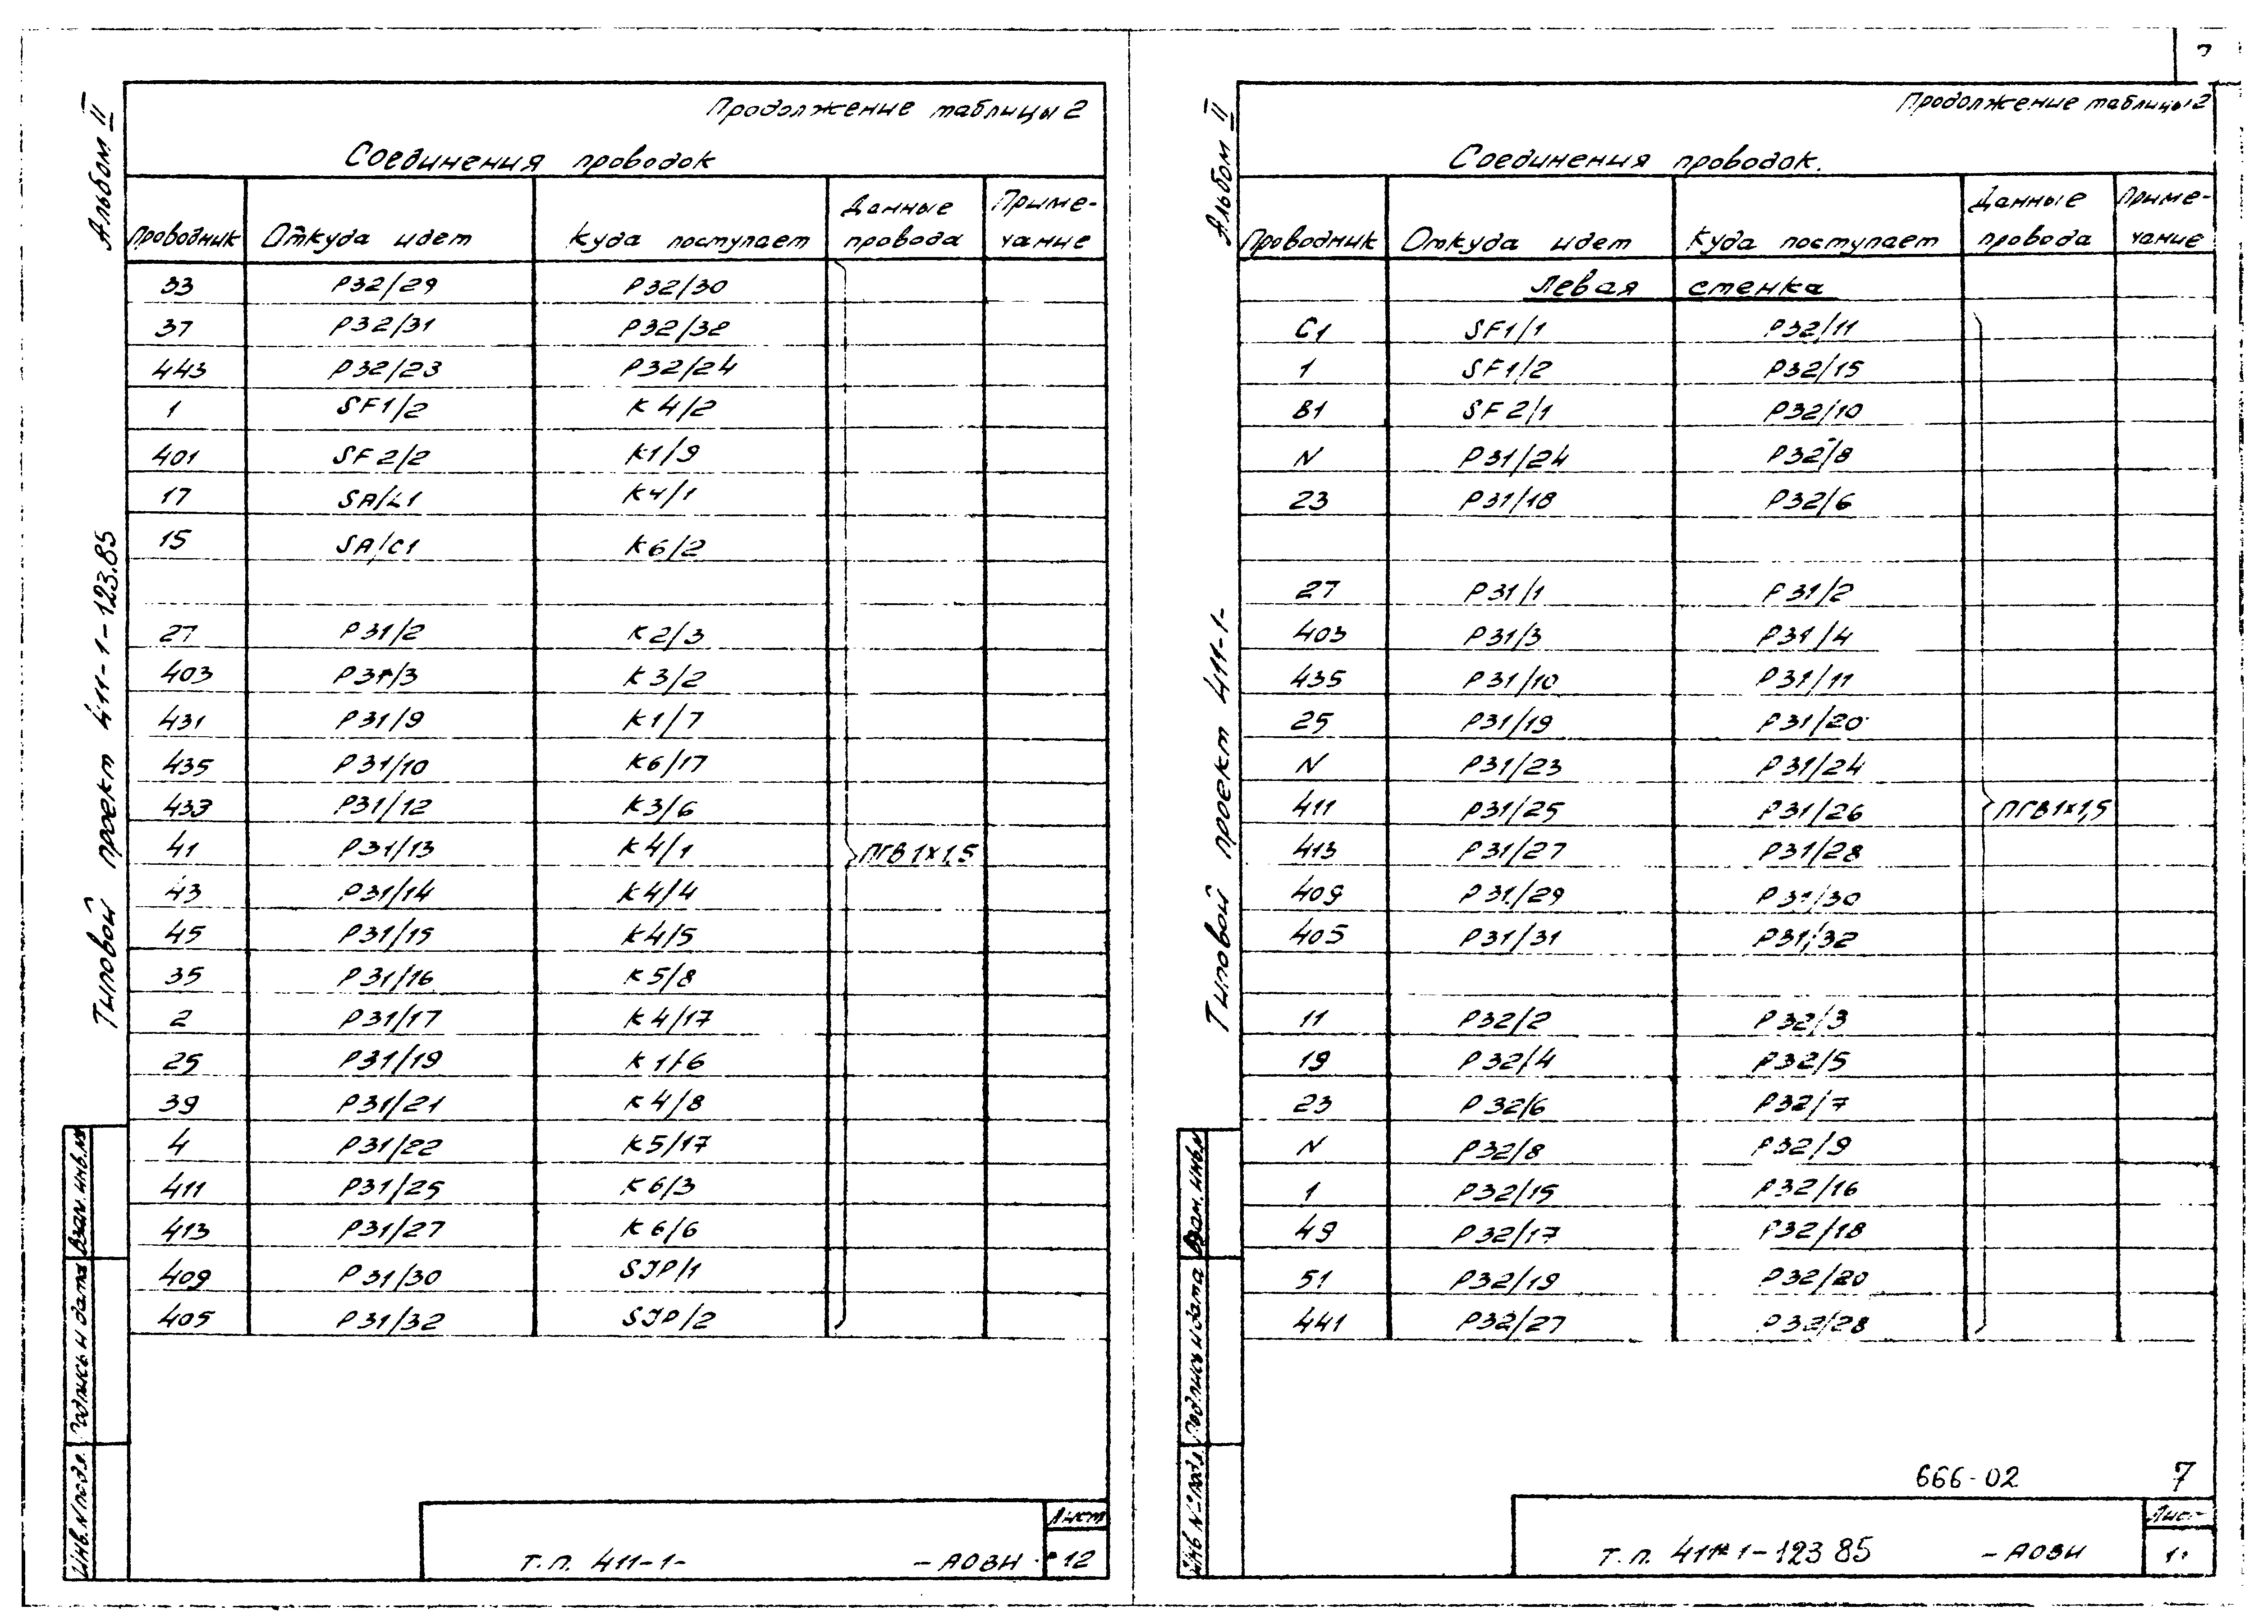 Продолжение таблицы 2
Соединения проводок
Проводник Откуда идет Куда поступает Данные провода Примечание
33 Р32/29 Р32/30
37 Р32/31 Р32/32
443 Р32/23 Р32/24
1 SF1/2 К4/2
401 SF2/2 К1/9
17 SA/L1 К4/1
15 SA/C1 К6/2
27 Р31/2 К2/3
403 Р31/3 К3/2
431 Р31/9 К1/7
435 Р31/10 К6/17
433 Р31/12 К3/6
41 Р31/13 К4/1 ПГВ1×1,5
43 Р31/14 К4/4
45 Р31/15 К4/5
35 Р31/16 К5/8
2 Р31/17 К4/17
25 Р31/19 К1/6
39 Р31/21 К4/8
4 Р31/22 К5/17
411 Р31/25 К6/3
413 Р31/27 К6/6
409 Р31/30 SJP/1
405 Р31/32 SJP/2
Альбом II
Типовой проект 411-1-123.85
Взам. инв. №
Подпись и дата
Инв. N подл.
Т.П. 411-1- -АОВИ
Лист
12
Продолжение таблицы 2
Соединения проводок.
Проводник Откуда идет Куда поступает Данные провода Примечание
Левая стенка
С1 SF1/1 Р32/11
1 SF1/2 Р32/15
В1 SF2/1 Р32/10
N Р31/24 Р32/8
23 Р31/18 Р32/6
27 Р31/1 Р31/2
403 Р31/3 Р31/4
435 Р31/10 Р31/11
25 Р31/19 Р31/20
N Р31/23 Р31/24
411 Р31/25 Р31/26 ПГВ1×1,5
413 Р31/27 Р31/28
409 Р31/29 Р31/30
405 Р31/31 Р31/32
11 Р32/2 Р32/3
19 Р32/4 Р32/5
23 Р32/6 Р32/7
N Р32/8 Р32/9
1 Р32/15 Р32/16
49 Р32/17 Р32/18
51 Р32/19 Р32/20
441 Р32/27 Р32/28
Альбом II
Типовой проект 411-1-
Взам. инв. N
Подпись и дата
Инв. N подл.
666-02 7
Т.П. 411-1-123 85 -АОВИ
Лист